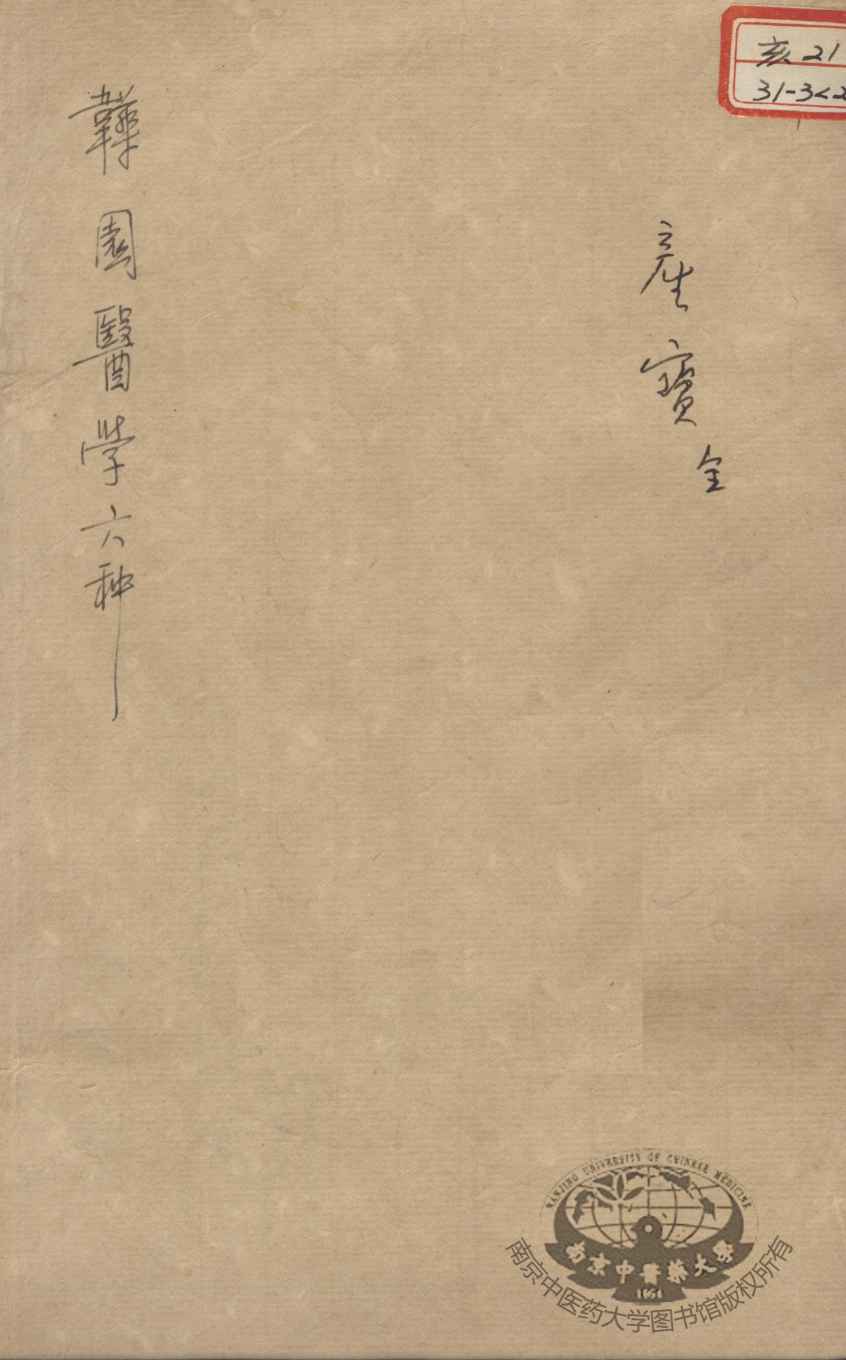 亥21
31-3<2
產寶
全
韡園醫学六种
NANJING UNIVERSITY OF CHINESE MEDICINE
南京中醫藥大學
1954
南京中医药大学图书馆版权所有